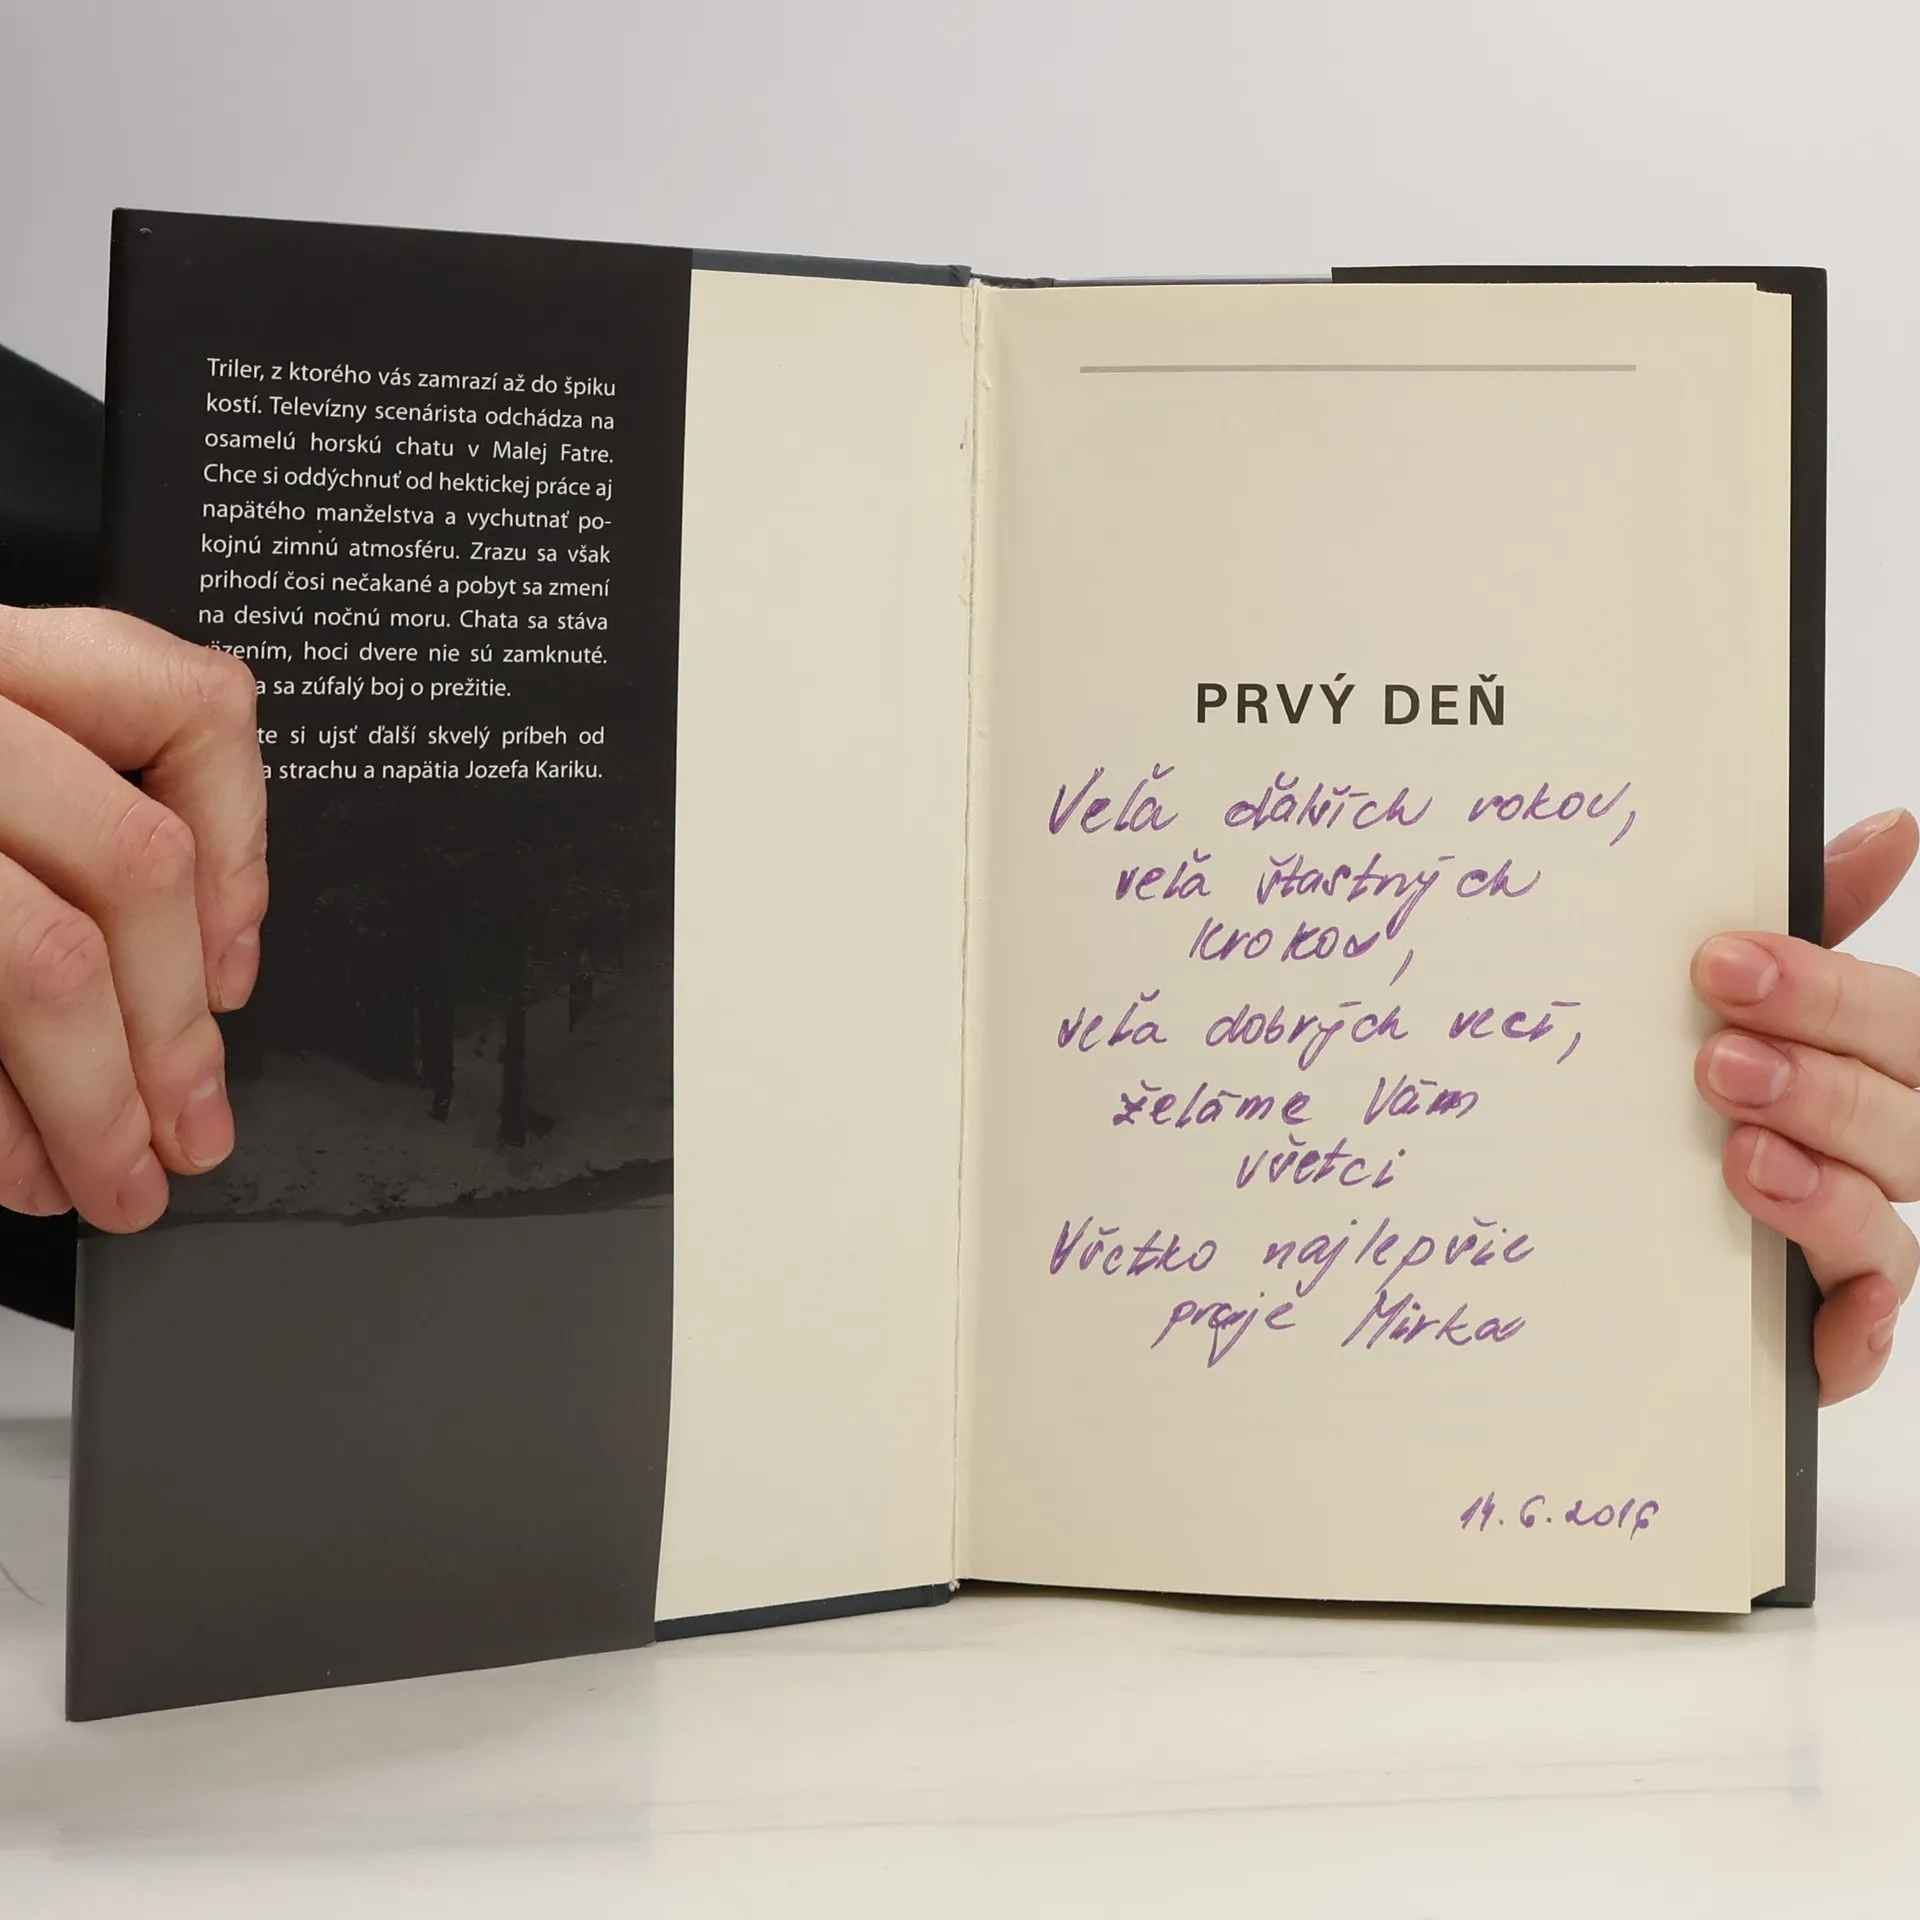 Triler, z ktorého vás zamrazí až do špiku
kostí. Televízny scenárista odchádza na
osamelú horskú chatu v Malej Fatre.
Chce si oddýchnuť od hektickej práce aj
napätého manželstva a vychutnať po-
kojnú zimnú atmosféru. Zrazu sa však
prihodí čosi nečakané a pobyt sa zmení
na desivú nočnú moru. Chata sa stáva
väzením, hoci dvere nie sú zamknuté.
sa zúfalý boj o prežitie.
si ujsť ďalší skvelý príbeh od
strachu a napätia Jozefa Kariku.
PRVÝ DEŇ
Veľa ďalších rokov,
veľa šťastných
krokov,
veľa dobrých vecí,
želáme Vám
všetci
Všetko najlepšie
praje Mirka
14.6.2016